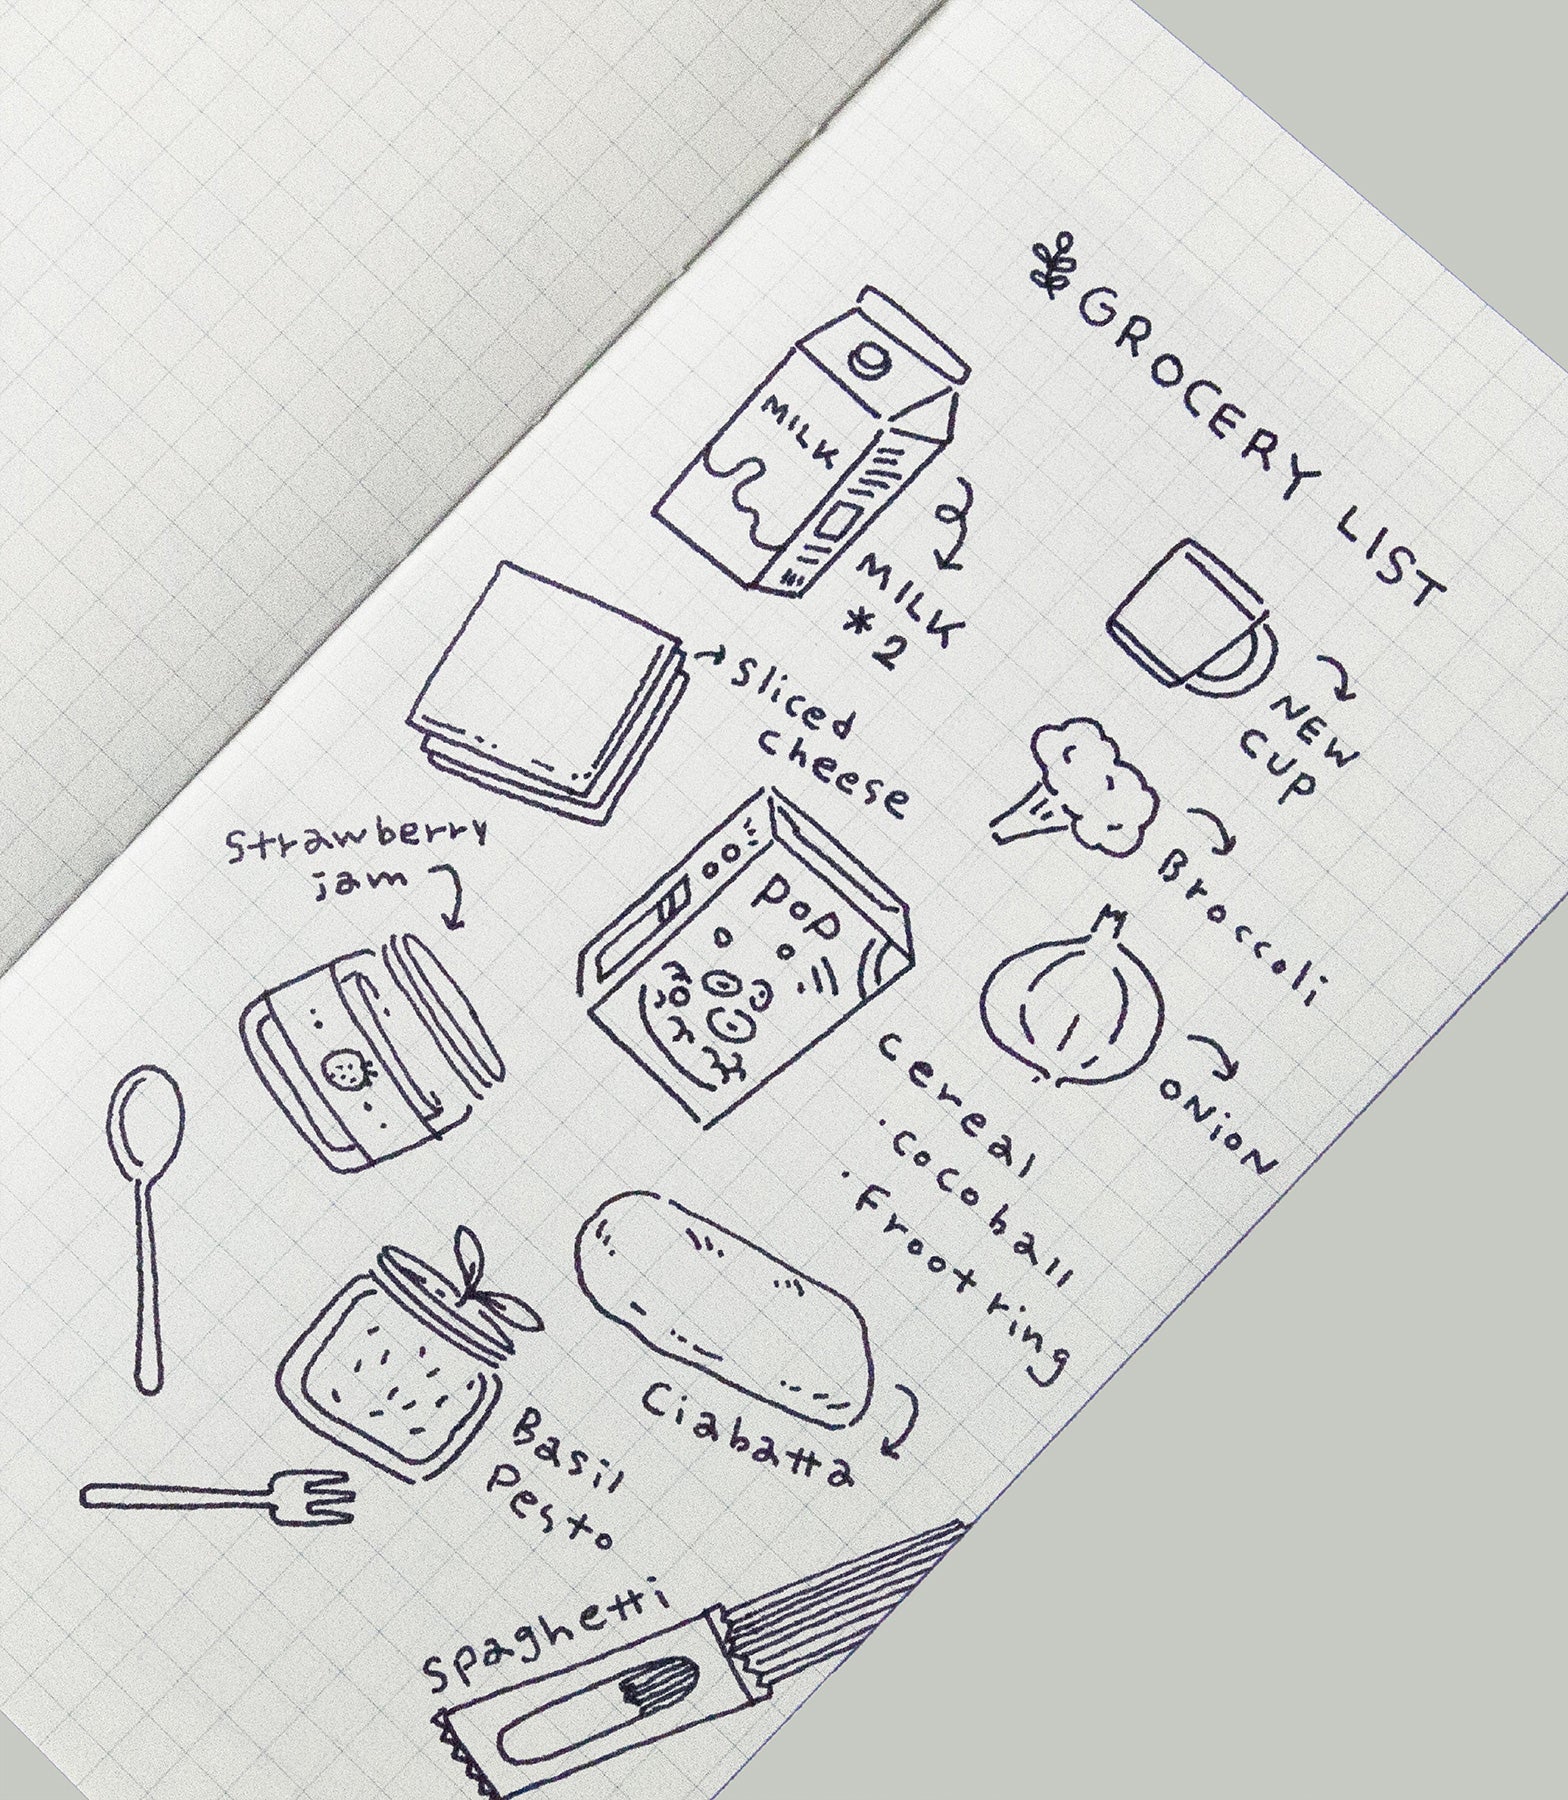 GROCERY LIST
MILK
MILK
*2
NEW
CUP
Sliced
cheese
Broccoli
Strawberry
jam
POP
ONION
cereal
·cocoball
·Froot ring
Ciabatta
Basil
Pesto
Spaghetti